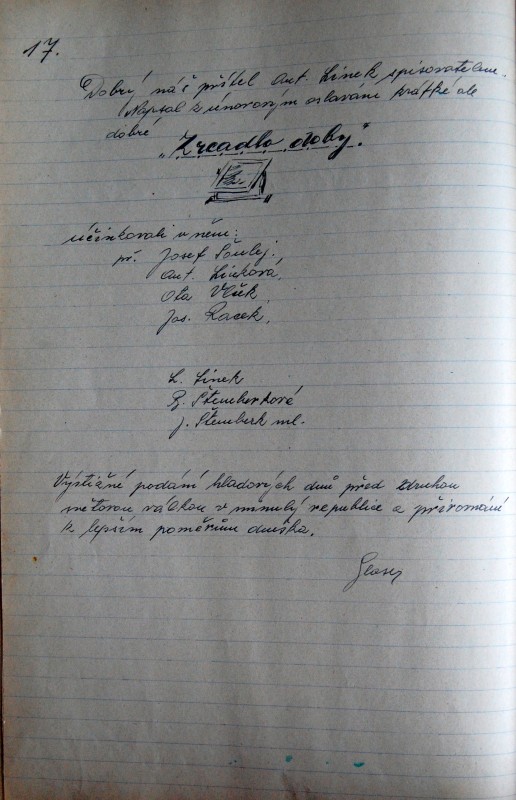 17.
Dobrý náš přítel Ant. Linek spisovatelem.
Napsal k únorovým oslavám krátké ale
dobré
"Zrcadlo doby."
účinkovali v něm:
př. Josef Šoulej.
Ant. Linková,
Ota Vlček,
Jos. Racek,
L. Linek
J. Štemberk ml.
Výstižné podání hladových dnů před druhou
světovou válkou v minulý republice a přirovnání
k lepším poměrům dneška.